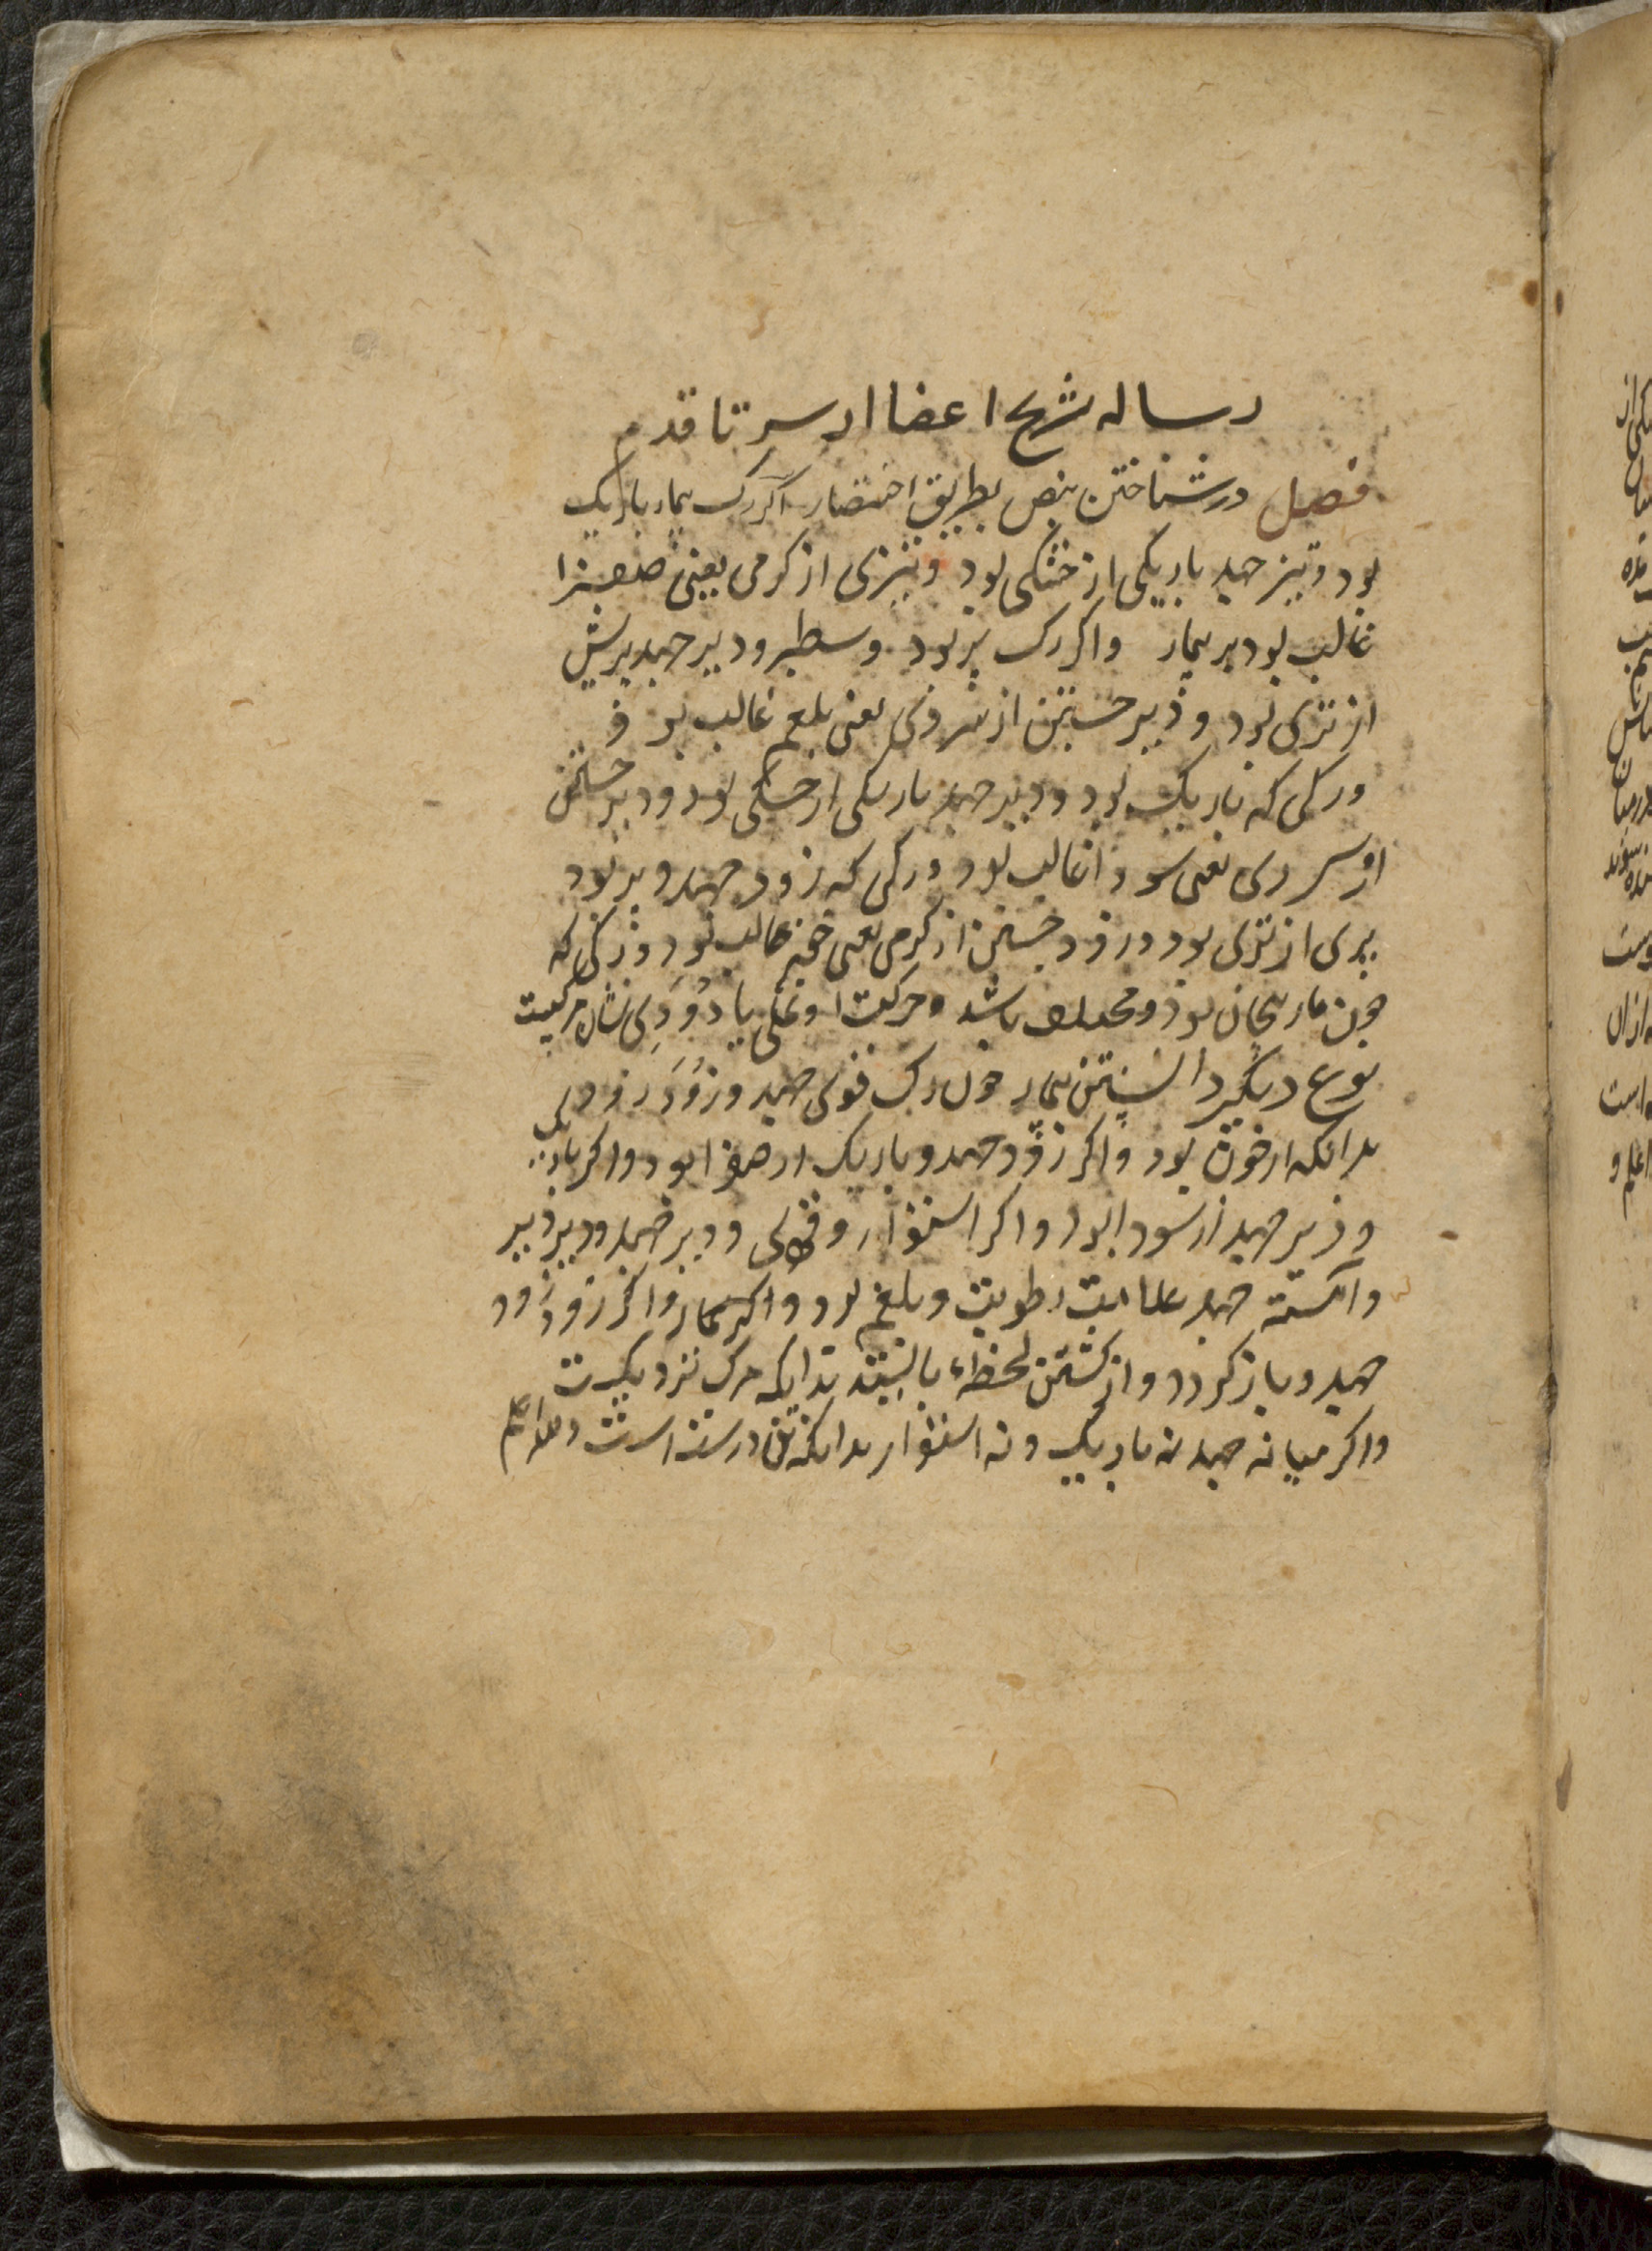 رساله شرح اعضا از سر تا قدم
فصل در شناختن نبض بطریق اختصار اگر رگ بیمار باریک
بود و تیز جهد باریکی از خشکی بود و تیزی از کرمی یعنی صفرا
غالب بود بر بیمار واکر رک پر بود و سطبر و دیر جهد پریش
از تری بود و دیر جستن از سردی یعنی بلغم غالب بود
و رکی که باریک بود و دیر جهد باریکی از خشکی بود و دیر جستن
از سردی یعنی سودا غالب بود و رکی که زود جهد و پر بود
پری از تری بود و زود جستن از کرمی یعنی خون غالب بود و رکی که
چون مار پیچان بود و مختلف باشد و حرکت او نملی یا دودی نشان مرکیست
نوع دیگر دانستن بیمار چون رک قوی جهد و زود زود
بدانکه از خون بود و اکر زود جهد و باریک از صفرا بود و اکر باریک
و دیر جهد از سودا بود و اکر استوار و قوی و دیر جهد و دیر دیر
و آهسته جهد علامت رطوبت و بلغم بود و اکر بیمار را رک زود زود
جهد و باز کردد و از کشتن لحظه‌ء بایستد بدانکه مرک نزدیکست
و اکر میانه جهد نه باریک و نه استوار بدانکه تن درست است والله اعلم